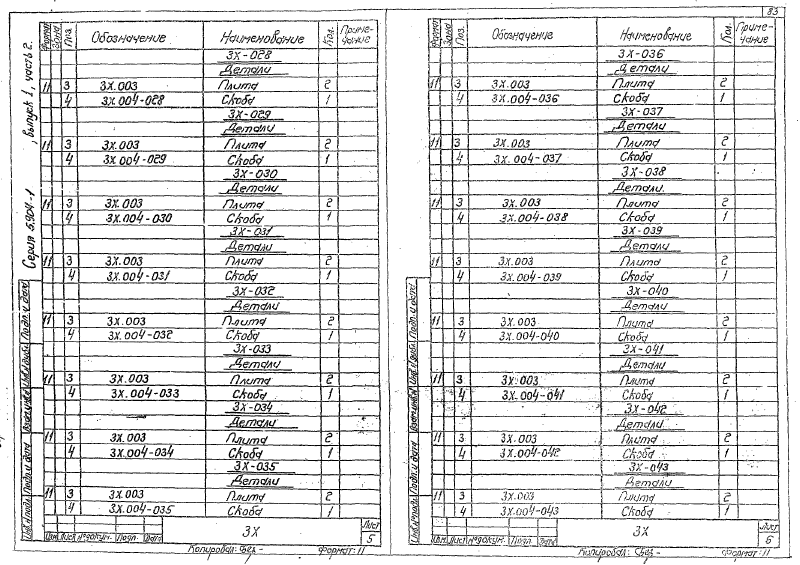 83
Серия 5.904-1, выпуск 1, часть 2.
Формат Зона Поз. Обозначение Наименование Кол. Примечание
3Х-028
Детали
11 3 3Х.003 Плита 2
4 3Х.004-028 Скоба 1
3Х-029
Детали
11 3 3Х.003 Плита 2
4 3Х.004-029 Скоба 1
3Х-030
Детали
11 3 3Х.003 Плита 2
4 3Х.004-030 Скоба 1
3Х-031
Детали
11 3 3Х.003 Плита 2
4 3Х.004-031 Скоба 1
3Х-032
Детали
11 3 3Х.003 Плита 2
4 3Х.004-032 Скоба 1
3Х-033
Детали
11 3 3Х.003 Плита 2
4 3Х.004-033 Скоба 1
3Х-034
Детали
11 3 3Х.003 Плита 2
4 3Х.004-034 Скоба 1
3Х-035
Детали
11 3 3Х.003 Плита 2
4 3Х.004-035 Скоба 1
Инв.№подл. Подп. и дата
Подп. и дата
Изм. Лист №докум. Подп. Дата
3Х
Лист
5
Копировал: Без -
Формат: 11
Формат Зона Поз. Обозначение Наименование Кол. Примечание
3Х-036
Детали
11 3 3Х.003 Плита 2
4 3Х.004-036 Скоба 1
3Х-037
Детали
11 3 3Х.003 Плита 2
4 3Х.004-037 Скоба 1
3Х-038
Детали.
11 3 3Х.003 Плита 2
4 3Х.004-038 Скоба 1
3Х-039
Детали
3 3Х.003 Плита 2
4 3Х.004-039 Скоба 1
3Х-040
Детали
11 3 3Х.003 Плита 2
4 3Х.004-040 Скоба 1
3Х-041
Детали
11 3 3Х.003 Плита 2
4 3Х.004-041 Скоба 1
3Х-042
Детали
11 3 3Х.003 Плита 2
4 3Х.004-042 Скоба 1
3Х-043
Детали
11 3 3Х.003 Плита 2
4 3Х.004-043 Скоба 1
Инв.№подл. Подп. и дата
Подп. и дата
Изм. Лист №докум. Подп. Дата
3Х
Лист
6
Копировал: Без -
Формат: 11